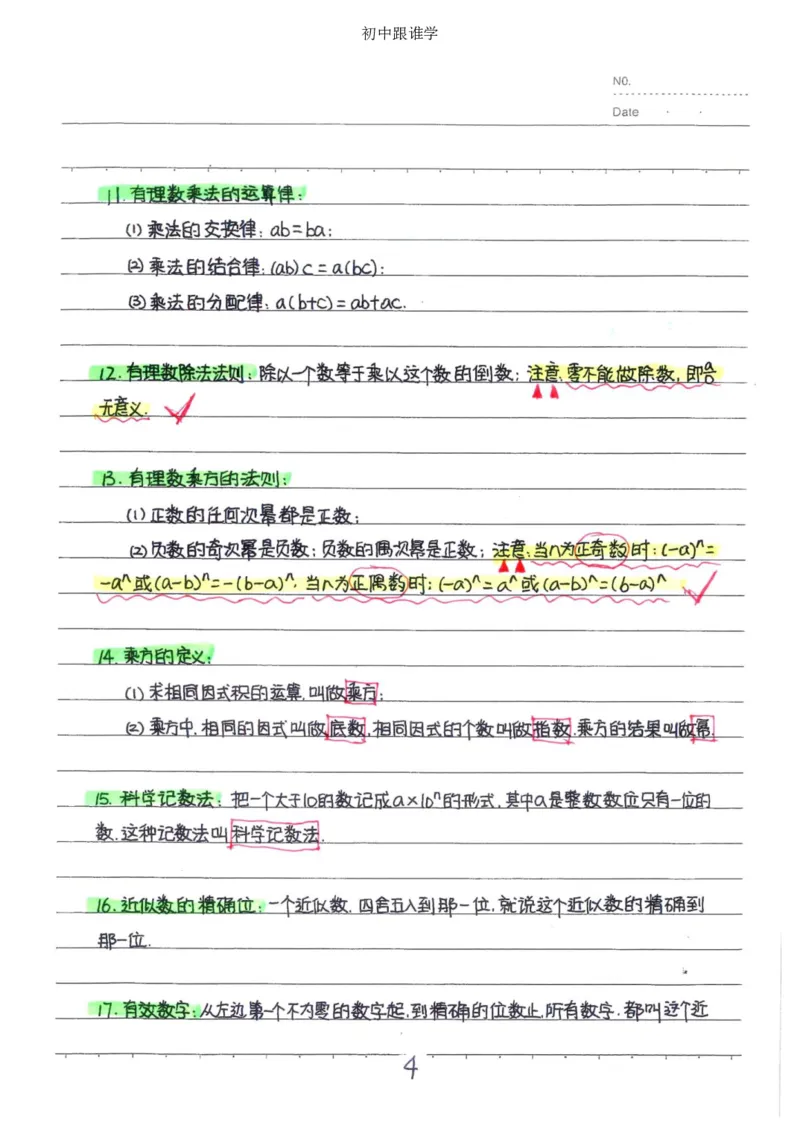 初中跟谁学
NO.
Date
11.有理数乘法的运算律:
(1)乘法的交换律:ab=ba;
(2)乘法的结合律:(ab)c=a(bc);
(3)乘法的分配律:a(b+c)=ab+ac.
12.有理数除法法则:除以一个数等于乘以这个数的倒数;注意:零不能做除数,即a/0
无意义.
13.有理数乘方的法则:
(1)正数的任何次幂都是正数;
(2)负数的奇次幂是负数;负数的偶次幂是正数;注意:当n为正奇数时:(-a)ⁿ=
-aⁿ或(a-b)ⁿ=-(b-a)ⁿ.当n为正偶数时:(-a)ⁿ=aⁿ或(a-b)ⁿ=(b-a)ⁿ
14.乘方的定义:
(1)求相同因式积的运算,叫做乘方;
(2)乘方中,相同的因式叫做底数,相同因式的个数叫做指数.乘方的结果叫做幂.
15.科学记数法:把一个大于10的数记成a×10ⁿ的形式,其中a是整数数位只有一位的
数.这种记数法叫科学记数法.
16.近似数的精确位:一个近似数,四舍五入到那一位,就说这个近似数的精确到
那一位.
17.有效数字:从左边第一个不为零的数字起,到精确的位数止,所有数字.都叫这个近
4